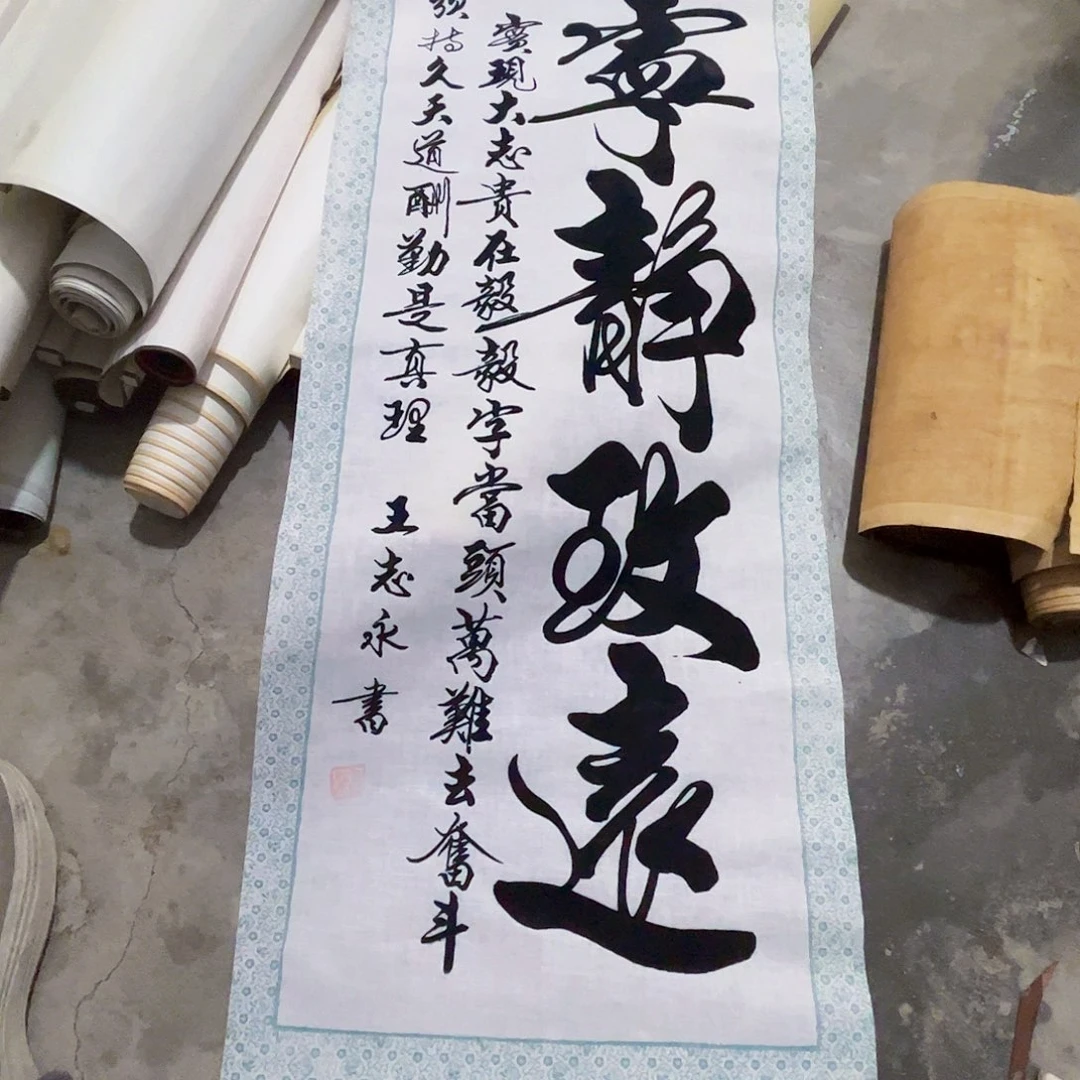 寧靜致遠
實現大志貴在毅毅字當頭萬難去奮斗
須持久天道酬勤是真理
王志永書